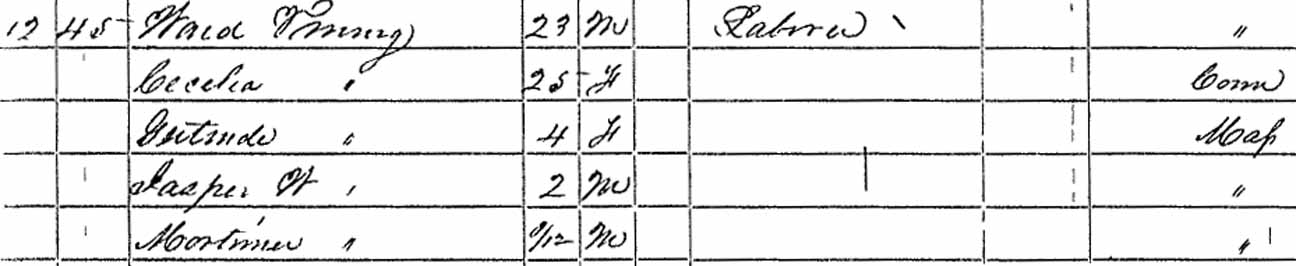 12 45 Ward Vining 23 M Laborer "
Cecelia " 25 F Conn
Gertrude " 4 F Mass
Jasper W " 2 M "
Mortimer " /12 M "